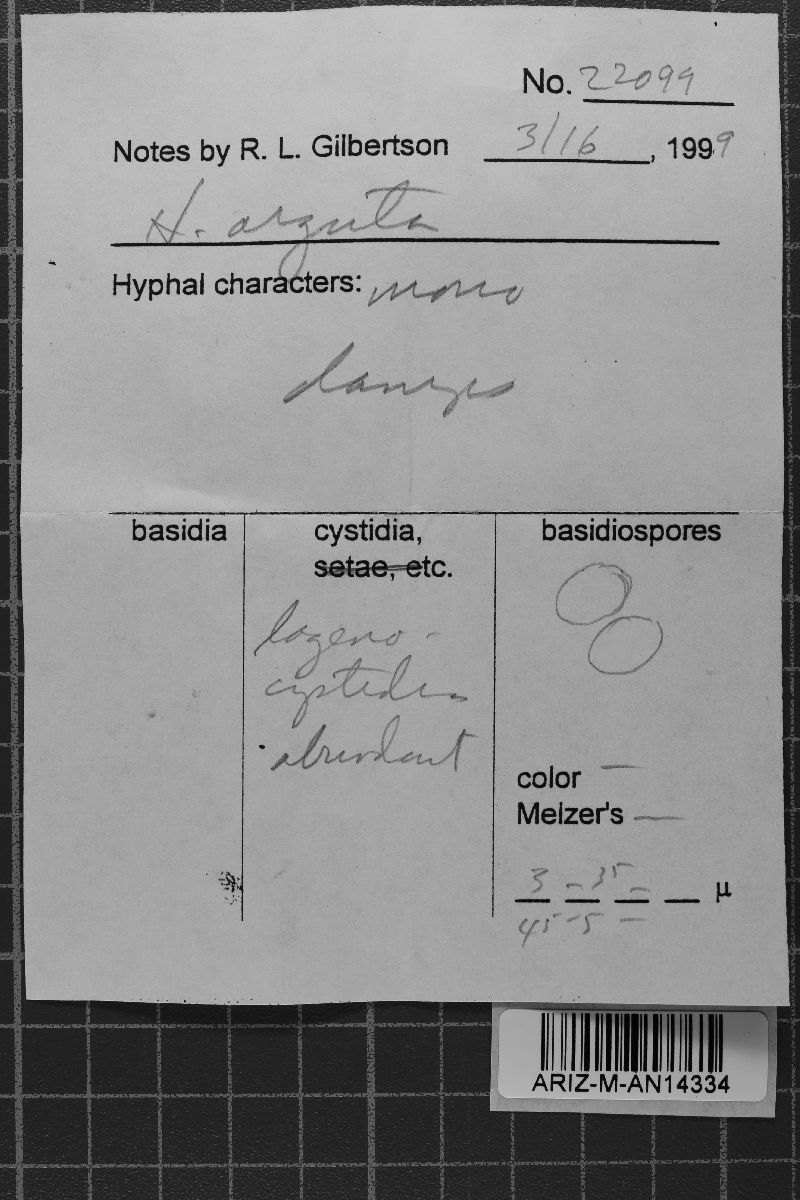 No. 22099
Notes by R. L. Gilbertson 3/16, 1999
H. arguta
Hyphal characters: mono
clamps
basidia
cystidia,
setae, etc.
lageno-
cystidia
abundant
basidiospores
color —
Melzer's —
3 - 35 - μ
45 - 5 -
ARIZ-M-AN14334